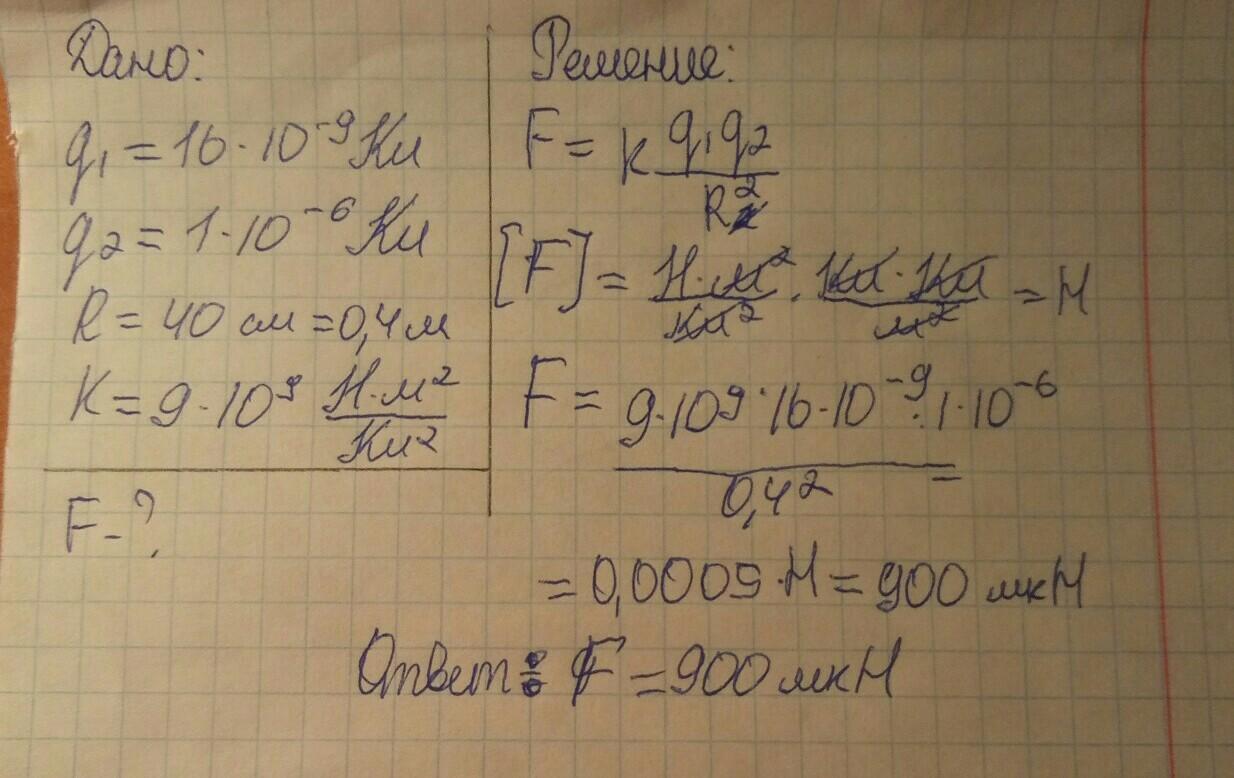 Дано:
q₁ = 16·10⁻⁹ Кл
q₂ = 1·10⁻⁶ Кл
R = 40 см = 0,4 м
K = 9·10⁹ Н·м²/Кл²
F - ?
Решение:
F = k q₁q₂/R²
[F] = Н·м²/Кл² · Кл·Кл/м² = Н
F = 9·10⁹·16·10⁻⁹·1·10⁻⁶/0,4² =
= 0,0009·Н = 900 мкН
Ответ: F = 900 мкН